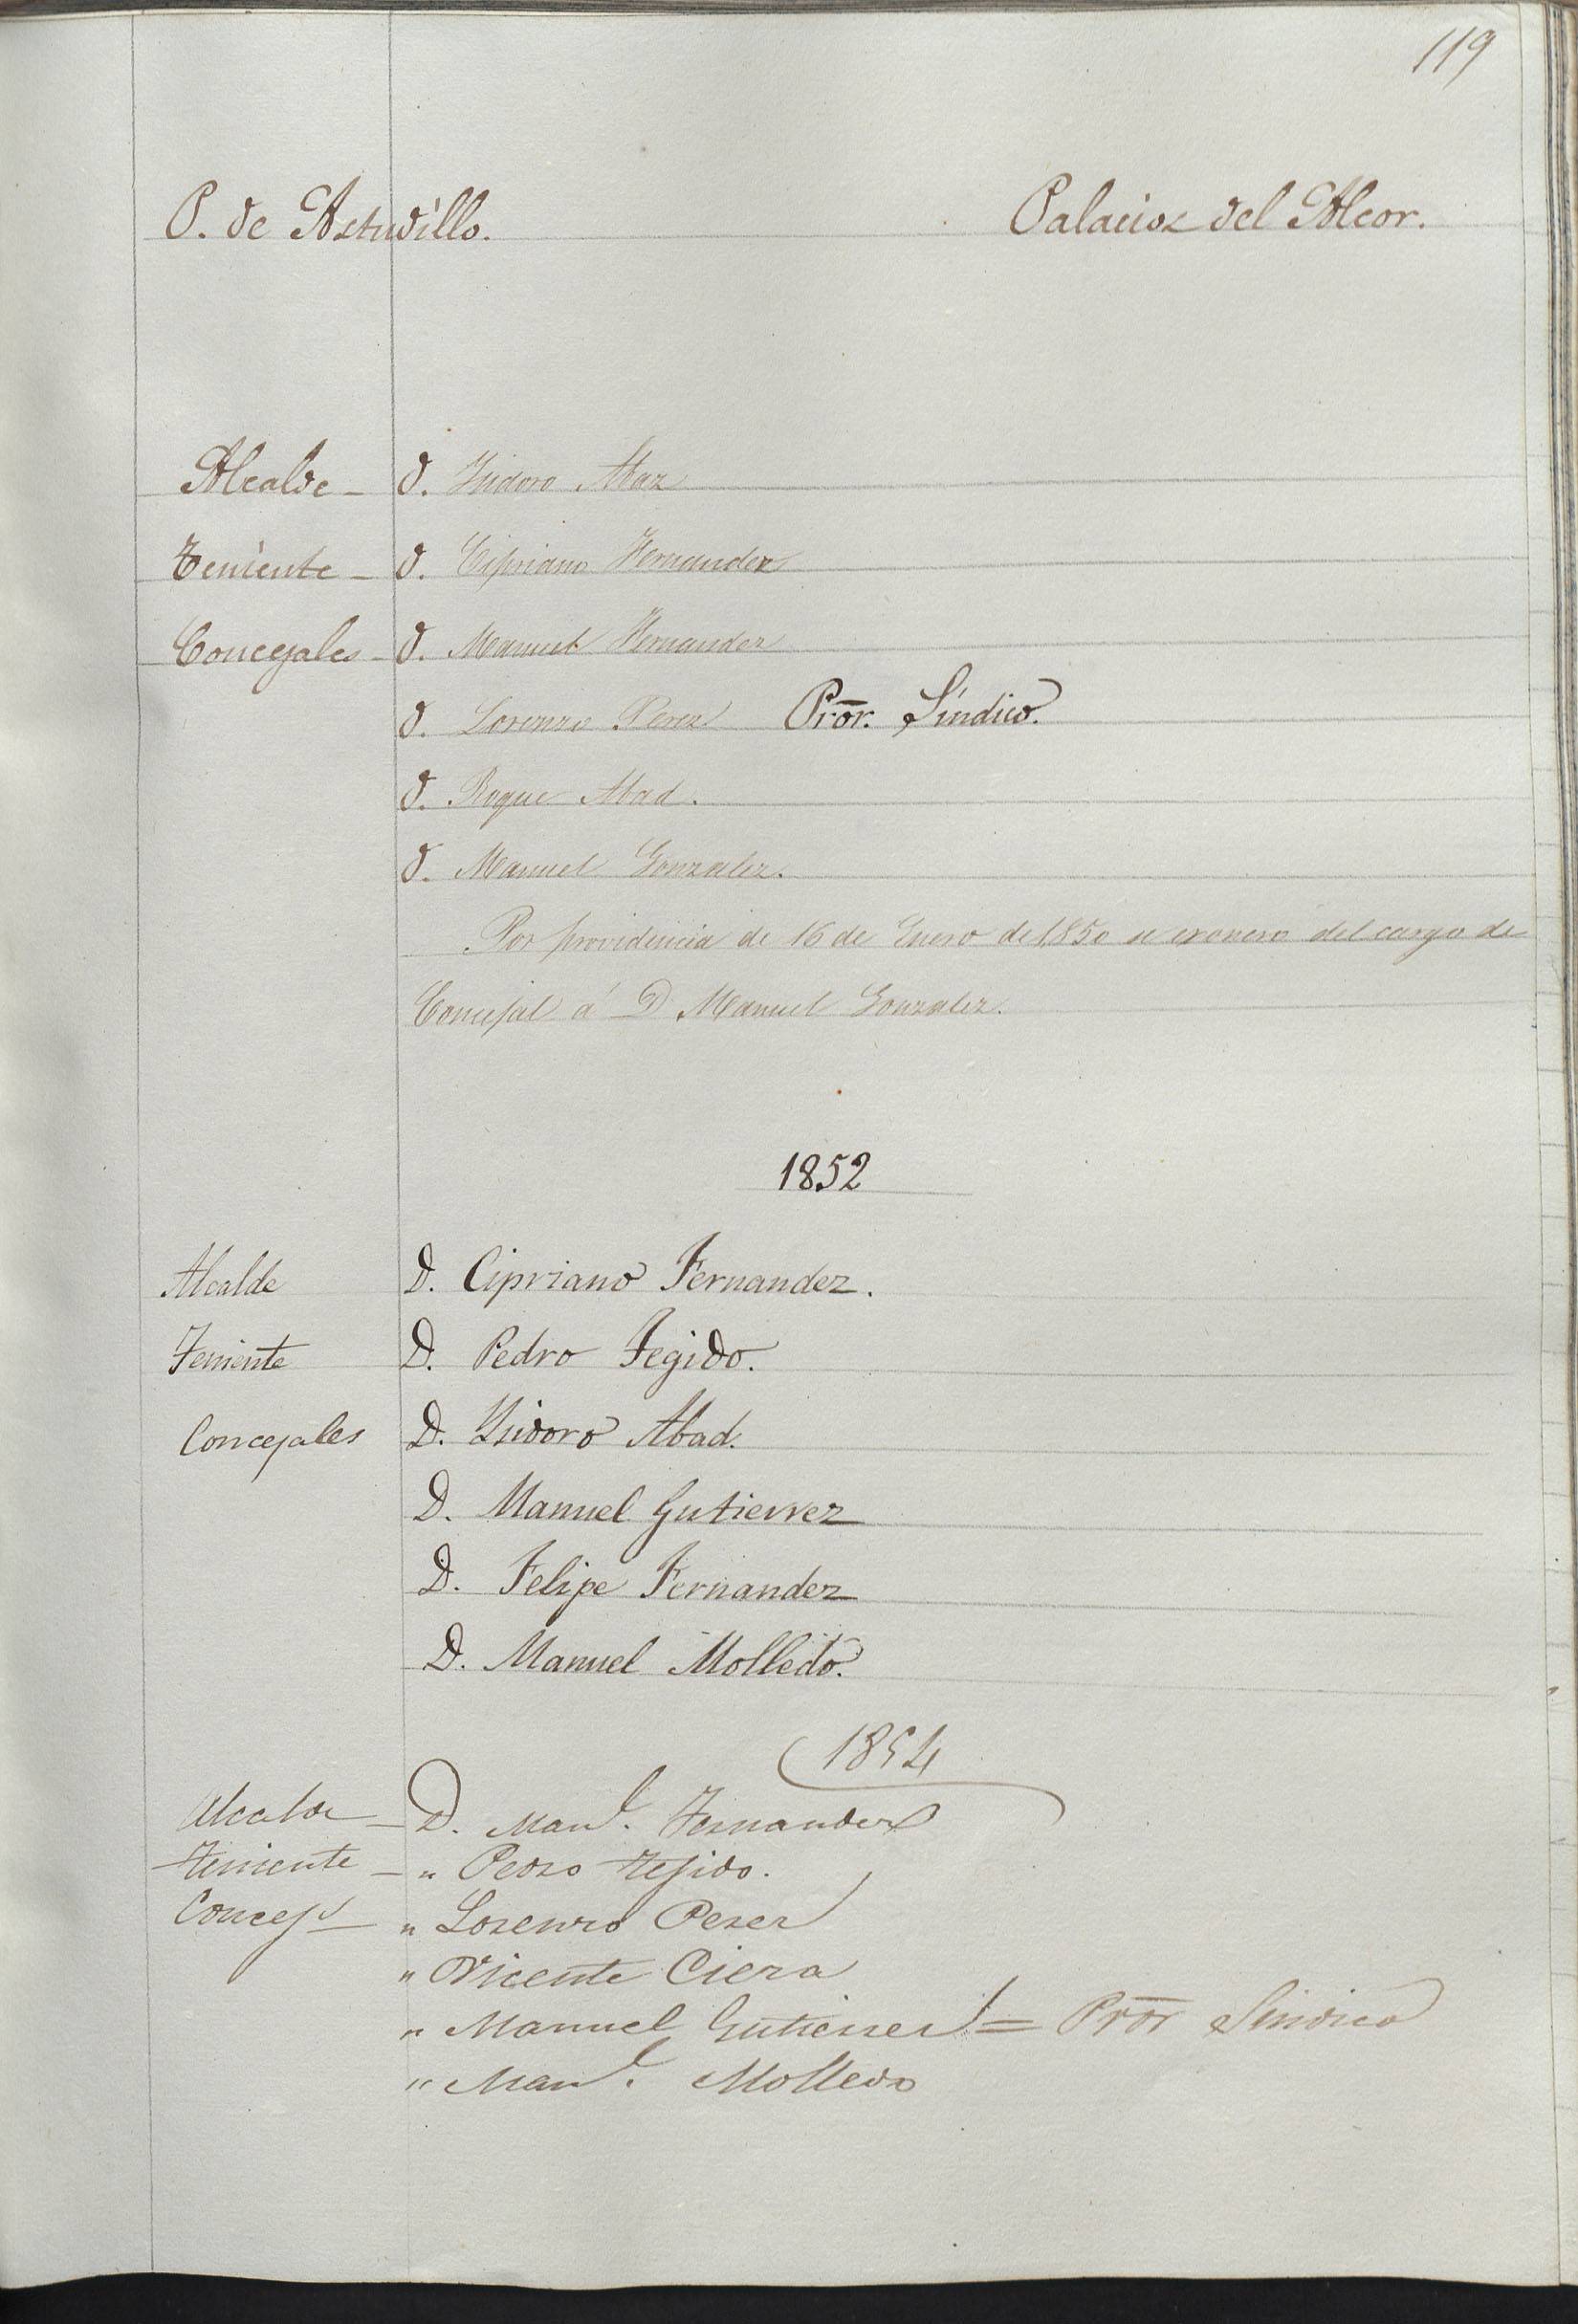 119
P. de Astudillo. Palacios del Alcor.
Alcalde - D. Ysidoro Abaz
Teniente - D. Cipriano Fernandez
Concejales - D. Manuel Fernandez
D. Lorenzo Perez Pror. Síndico.
D. Roque Abad.
D. Manuel Gonzalez.
Por providencia de 16 de Enero de 1850 se exonero del cargo de
Concejal á D Manuel Gonzalez.
1852
Alcalde D. Cipriano Fernandez.
Teniente D. Pedro Tegido.
Concejales D. Ysidoro Abad.
D. Manuel Gutierrez
D. Felipe Fernandez
D. Manuel Molledo.
1854
Alcalde - D. Manl. Fernandez
Teniente - " Pedro Tejido.
Concejs - " Lorenzo Perez
" Vicente Ciera
" Manuel Gutierrez = Pror Sindico
" Manl. Molledo